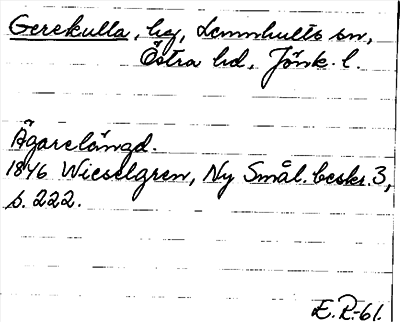 Gerekulla, hg, Lemnhults sn,
Östra hd, Jönk. l.
Ägarelängd.
1846 Wieselgren, Ny Smål. beskr. 3,
s. 222.
E. R-61.